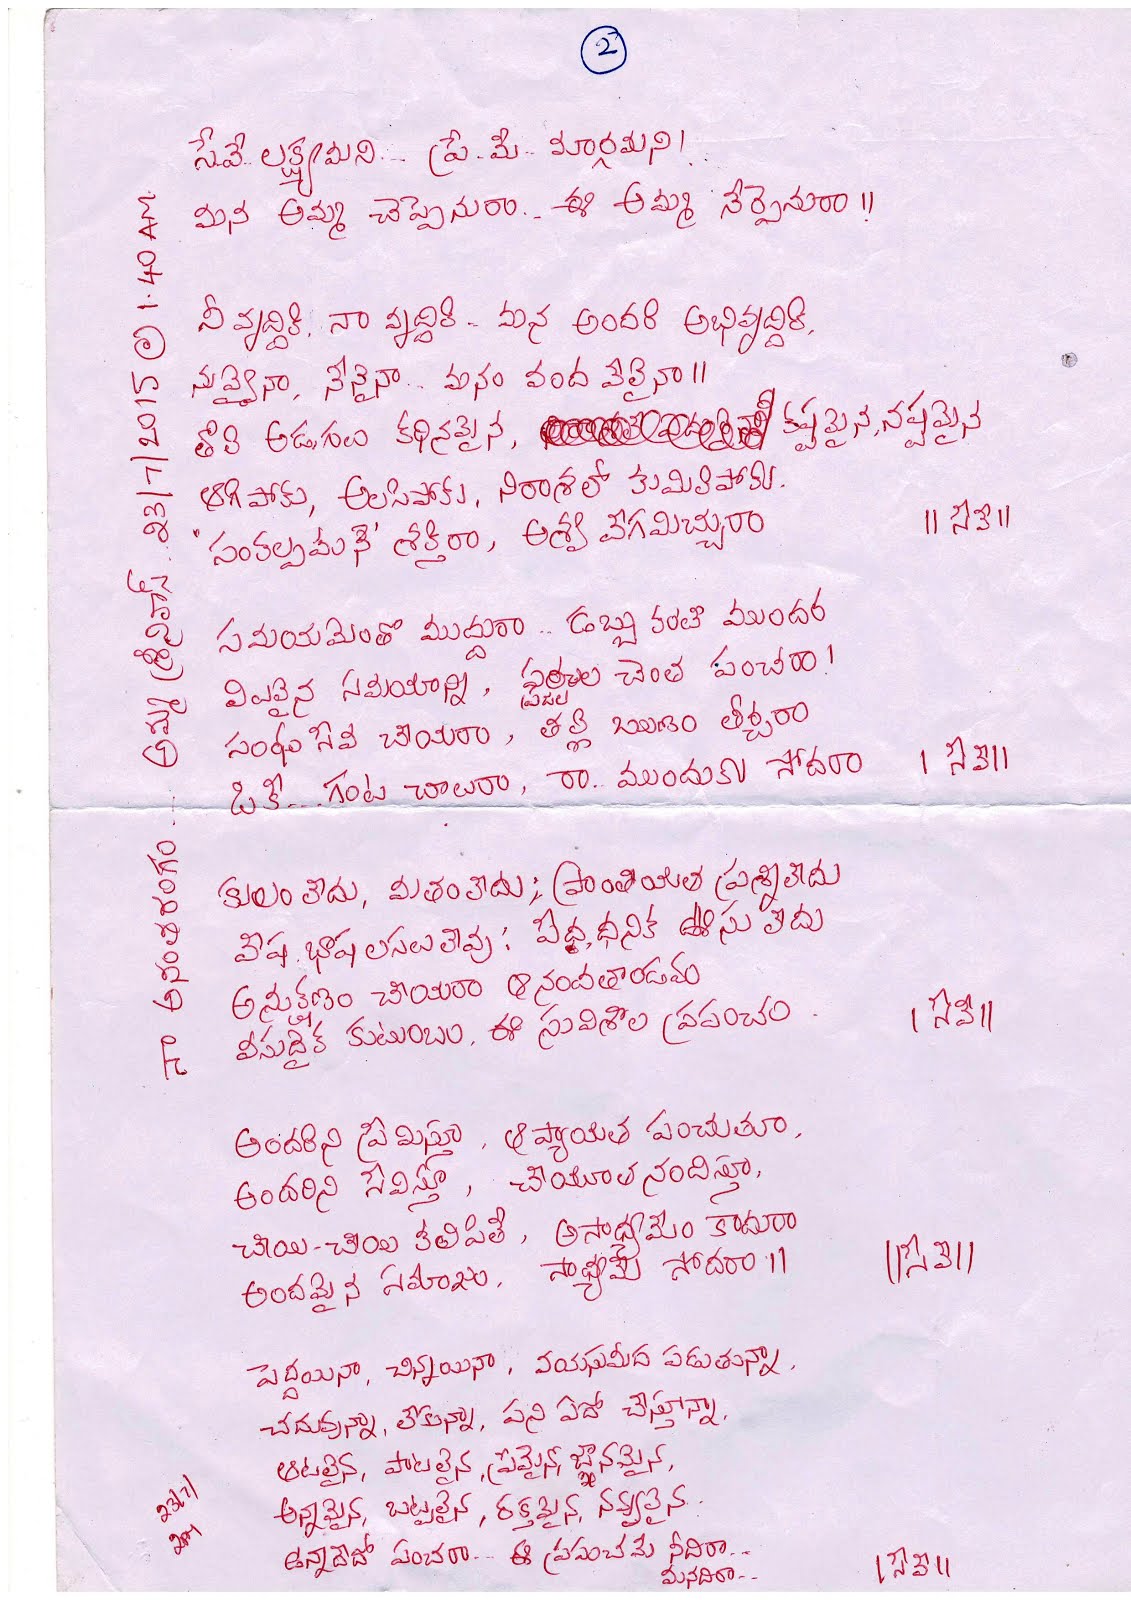 2
సేవే లక్ష్యమని... ప్రే.మే.. మార్గమని!..
మన అమ్మ చెప్పెనురా.. ఈ అమ్మ నేర్పెనురా ||
నీ వృద్ధికి, నా వృద్ధికి - మన అందరి అభివృద్ధికి,
నువ్వైనా, నేనైనా.. మనం వంద వేలైనా ||
తొలి అడుగులు కఠినమైన, కష్టమైన, నష్టమైన
ఆగిపోకు, అలసిపోకు, నిరాశలో కుమిలిపోకు.
'సంకల్పమనే' శక్తిరా, అశ్వ వేగమిచ్చురా || సేవే ||
సమయమెంతొ ముద్దురా .. డబ్బు కంటె ముందర
విలువైన సమయాన్ని, ప్రజల చెంత పంచరా !
సంఘ సేవ చేయరా, తల్లి ఋణం తీర్చరా
ఒకే... గంట చాలురా, రా.. ముందుకు సోదరా | సేవే ||
కులం లేదు, మతం లేదు; ప్రాంతీయత ప్రశ్నలేదు
వేష భాష లసలు లేవు; పేద, ధనిక ఊసు లేదు
అనుక్షణం చేయరా ఆనందతాండవం
వసుదైక కుటుంబం, ఈ సువిశాల ప్రపంచం . | సేవే ||
అందరిని ప్రేమిస్తూ, ఆప్యాయత పంచుతూ,
అందరిని సేవిస్తూ, చేయూతనందిస్తూ,
చేయి-చేయి కలిపితే, అసాధ్యమేం కాదురా
అందమైన సమాజం, సాధ్యమే సోదరా || || సేవే ||
పెద్దయినా, చిన్నయినా, వయసుమీద పడుతున్నా,
చదువున్నా, లేకున్నా, పని ఏదో చేస్తూన్నా,
ఆటలైన, పాటలైన, ప్రేమైన, జ్ఞానమైన,
అన్నామైన, బట్టలైన, రక్తమైన, నవ్వులైన..
ఉన్నాదేదో పంచరా... ఈ ప్రపంచమే నీదిరా...
మనదిరా... | సేవే ||
నా అంతరంగం ... అమ్మ శ్రీనివాస్ . 23/7/2015 @ 1.40 AM
23/7/